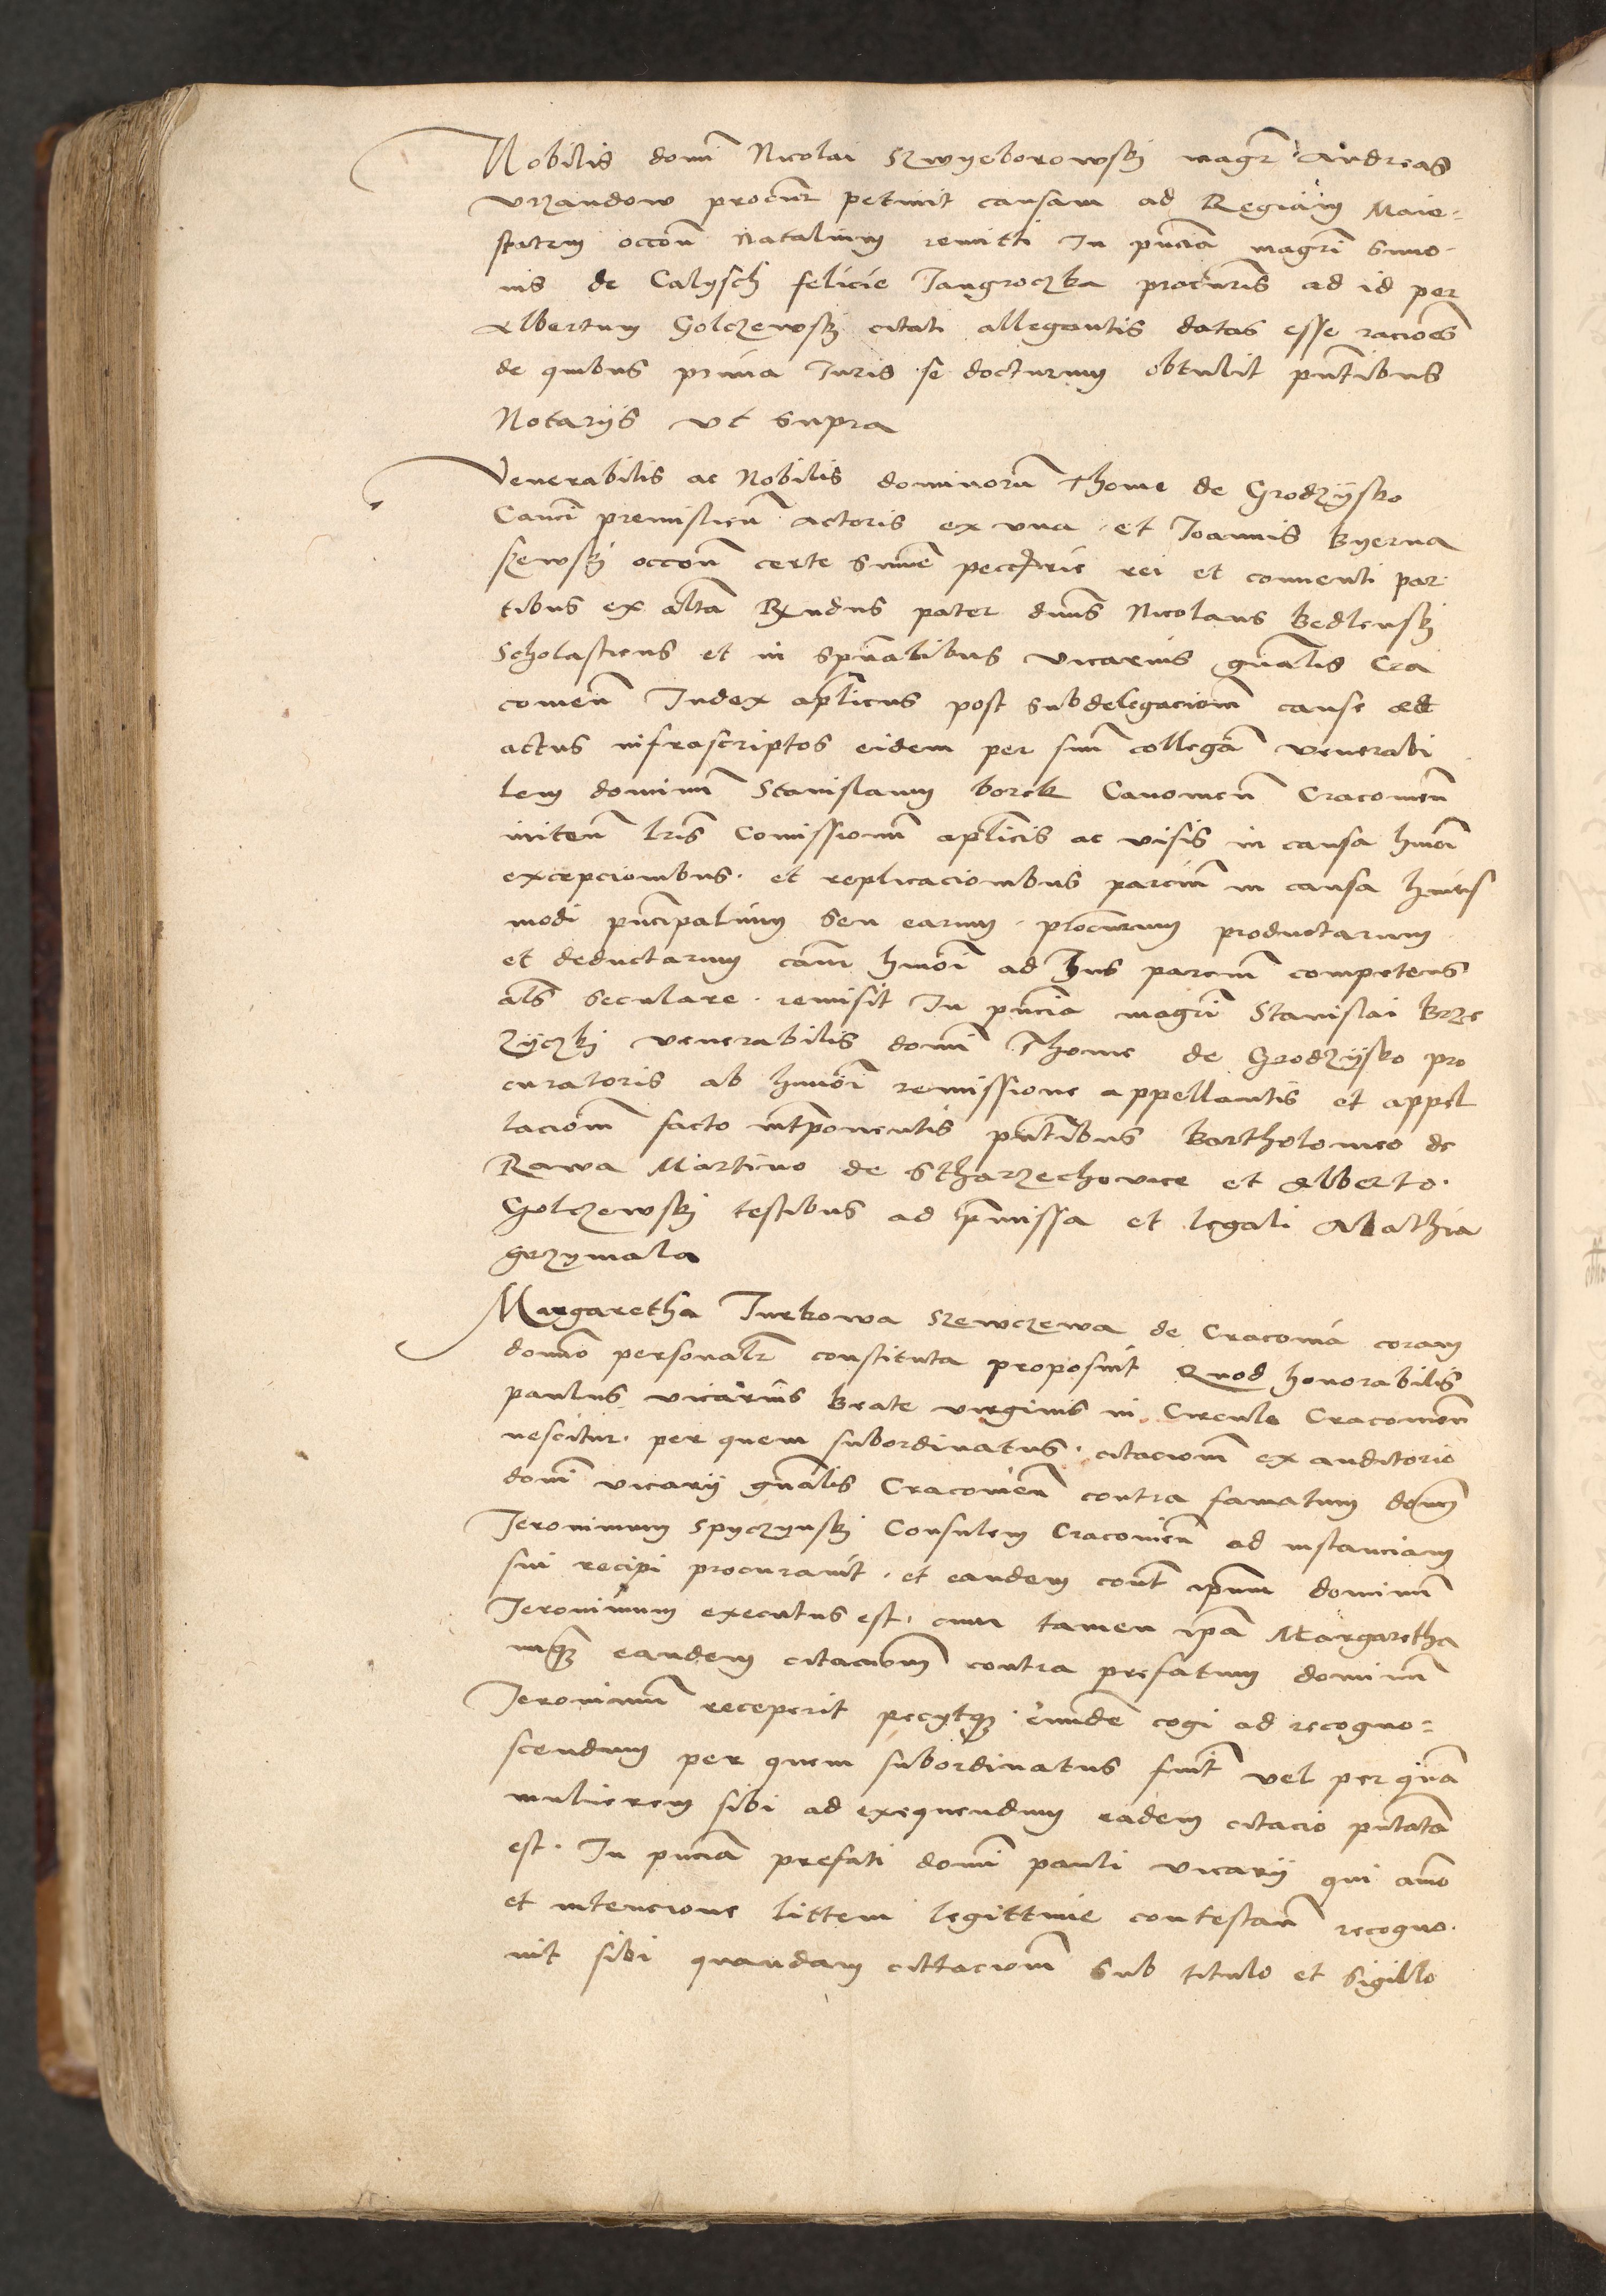 Nobilis domi Nicolai Szwyeborowskj magr Andreas
vrzandow procur petiuit causam ad Regiam Maie=
statem occon natalium remitti In pncia magri Simo-
nis de Calysch felicie Jangroczka procuris ad id per
Albertum Golczewskj citati allegantis datas esse raciones
de quibus prima Iuris se docturum obtulit pntibus
Notarijs vt supra
Venerabilis ac Nobilis dominoru Thome de Grodzysko
Canci premislien actoris ex vna et Joannis Byerna
szewskj occon certe summe peccurie rei et conuenti par
tibus ex altera Rndus pater dnus Nicolaus Bedlenskj
Scholasticus et in spualibus vicarius gnalis Cra
couien Iudex aplicus post subdelegacionem cause ad
actus infrascriptos eidem per suu collegam venerabi
lem dominu Stanislaum borek Canonicu Cracouien
litris Comissionis aplicis ac visis in causa hmoi
excepcionibus. et replicacionibus parcium in causa huius
modi pncipalium seu earum procurum productarum
et deductarum cam hmoi ad Ius parcium competens
als seculare. remisit In pncia magri Stanislai Brze
zyczkj venerabilis domi Thome de Grodzysko pro
curatoris ab hmoi remissione appellantis et appel
lacionem facto interponentis pntibus Bartholomeo de
Rawa Martino de Stharzechovice et Alberto.
Golczewskj testibus ad premissa et legali Mathia
grzymala
Margaretha Turkowa Szewczewa de Cracouia coram
domino personaliter constituta proposuit Quod honorabilis
paulus vicarius Beate virginis in Circulo Cracouien
nescitur. per quem subordinatus. citacionem ex auditorio
domi vicarij gnalis Cracouien contra famatum domi
Jeronimum Spyczynskj Consulem Cracouien ad instanciam
sui recipi procurauit. et eandem cont ipsum dominu
Jeronimum executus est. cum tamen ipa Margaretha
nuqz eandem citacionem contra prefatum dominu
Jeronimu receperit pecytqz eunde cogi ad recogno=
scendum per quem subordinatus fuit vel per qua
mulierem sibi ad exequendum eadem citacio pntata
est. In pncia prefati domi pauli vicarij qui animo
et intencione littem legittime contestan recogno.
uit sibi quandam cittacionem sub titulo et sigillo